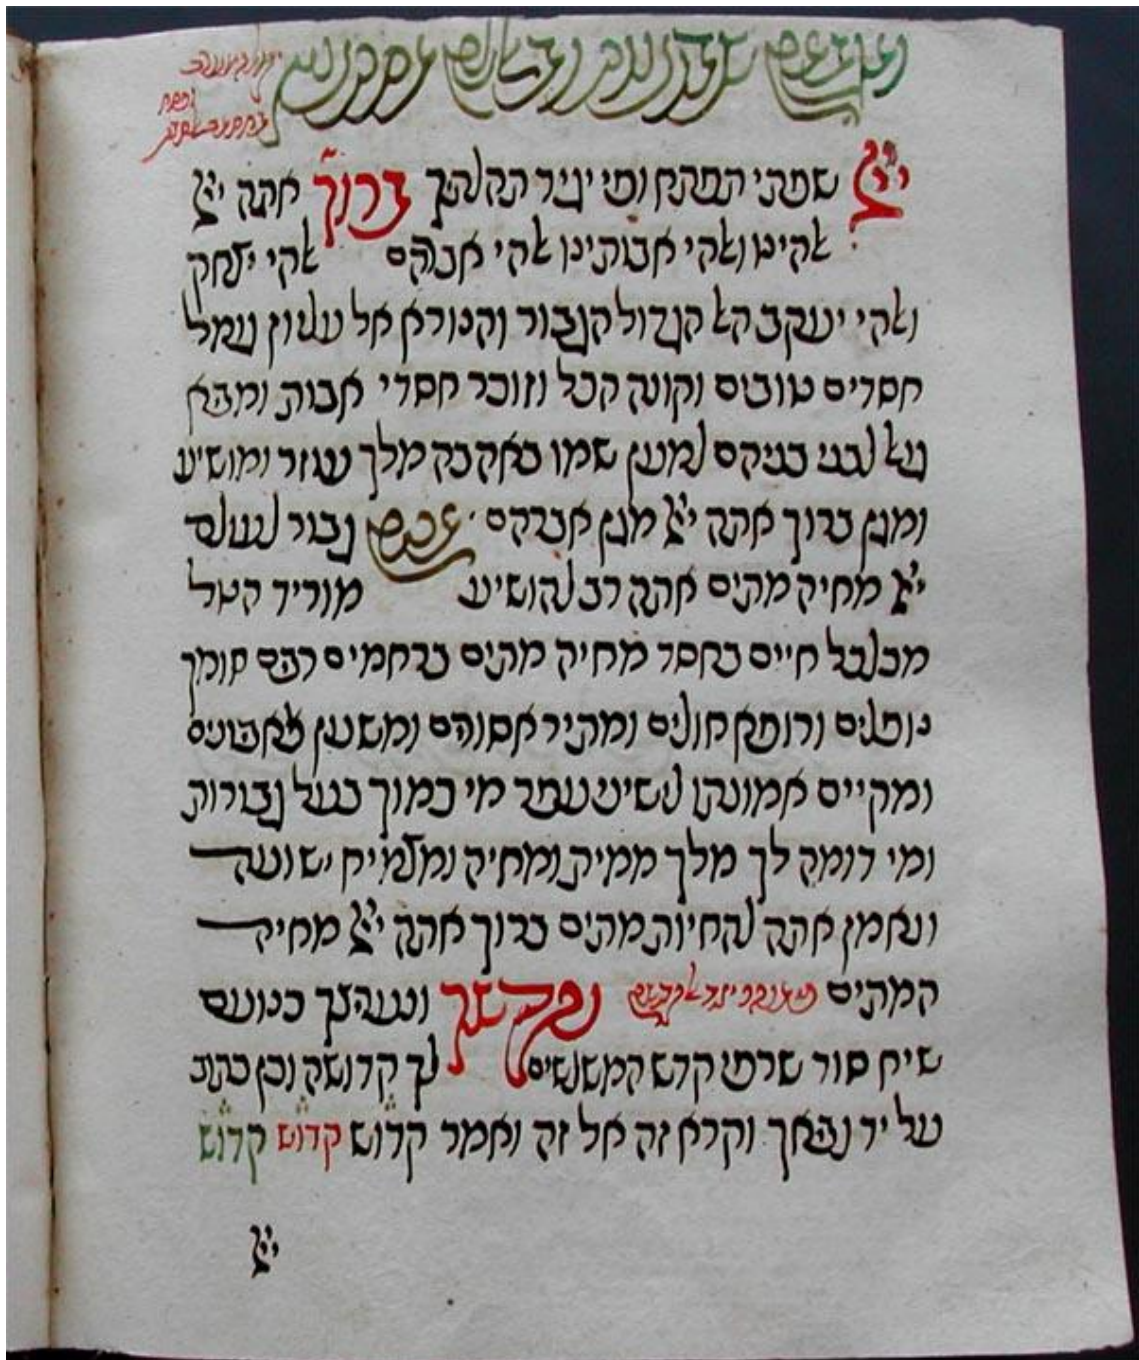 ייא שפתי תפתח ופי יגיד תהלתך ברוך אתה ייא
אלהינו ואלהי אבותינו אלהי אברהם אלהי יצחק
ואלהי יעקב האל הגדול הגבור והנורא אל עליון גומל
חסדים טובים וקונה הכל וזוכר חסדי אבות ומביא
גואל לבני בניהם למען שמו באהבה מלך עוזר ומושיע
ומגן ברוך אתה ייא מגן אברהם גבור לעולם
ייא מחיה מתים אתה רב להושיע מוריד הטל
מכלכל חיים בחסד מחיה מתים ברחמים רבים סומך
נופלים ורופא חולים ומתיר אסורים ומשען לאביונים
ומקיים אמונתו לישיני עפר מי כמוך בעל גבורות
ומי דומה לך מלך ממית ומחיה ומצמיח ישועה
ונאמן אתה להחיות מתים ברוך אתה ייא מחיה
המתים נקדשך ונעריצך כנועם
שיח סוד שרפי קדש המשלשים לך קדושה וכן כתוב
על יד נביאך וקרא זה אל זה ואמר קדוש קדוש קדוש
ייא